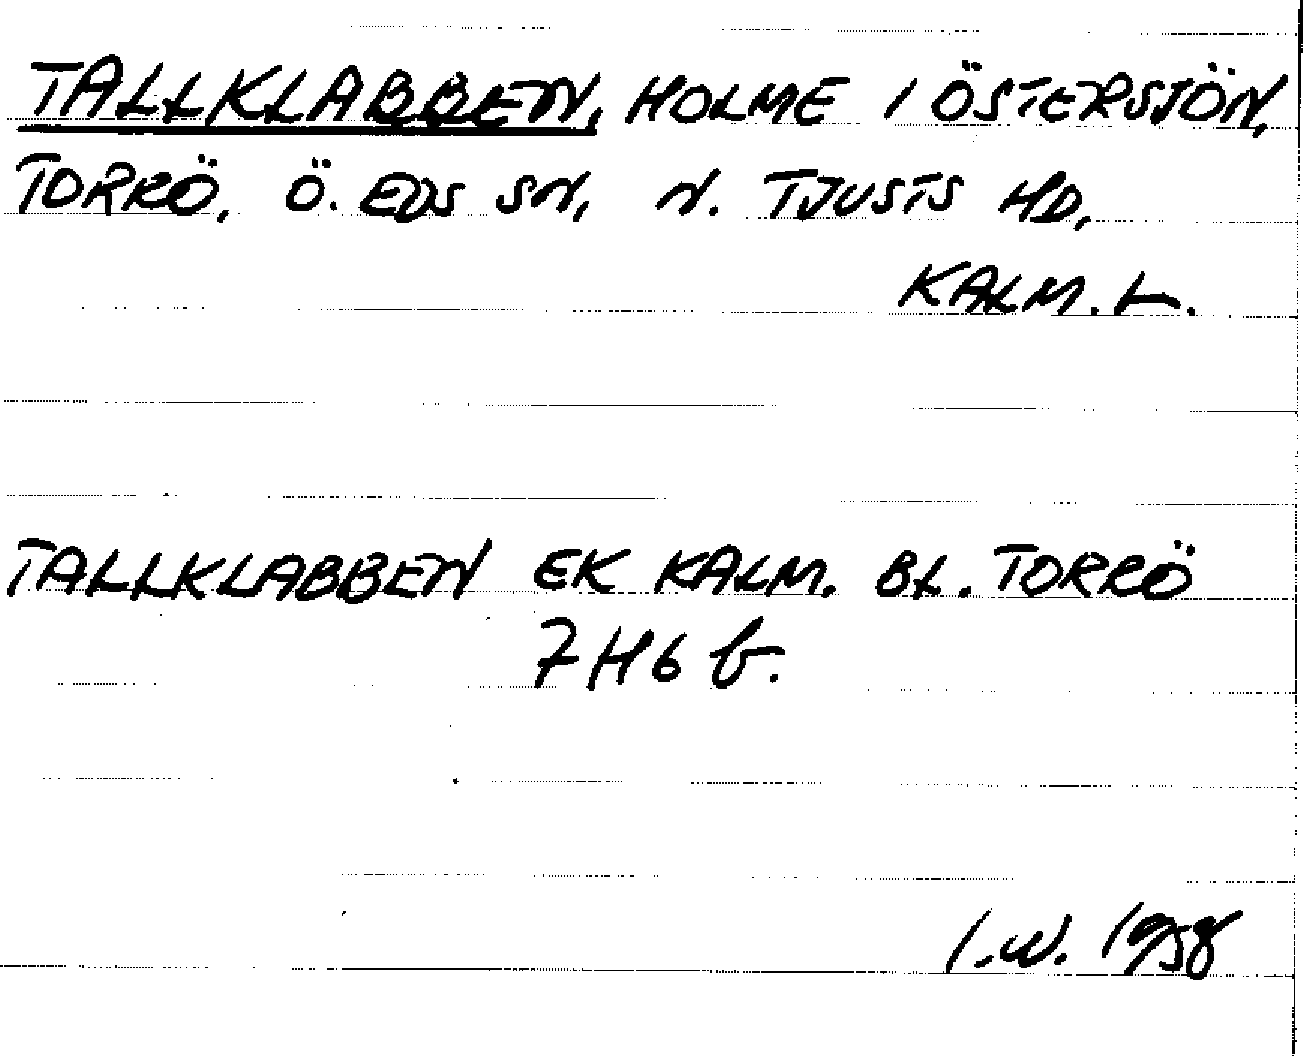 TALLKLABBEN, HOLME I ÖSTERSJÖN,
TORRÖ, Ö. EDS SN, N. TJUSTS HD,
KALM. L.
TALLKLABBEN EK KALM. BL. TORRÖ
7H6 b.
I.W. 1958